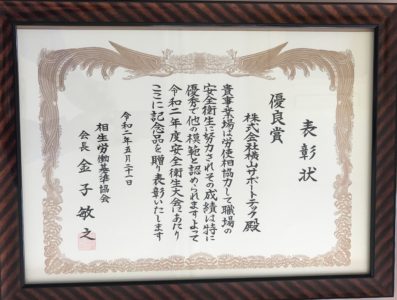 表彰状
優良賞
株式会社横山サポートテク殿
貴事業場は労使相協力して職場の
安全衛生に努力されその成績は特に
優秀で他の模範と認められますよって
令和二年度安全衛生大会にあたり
ここに記念品を贈り表彰いたします
令和二年五月二十二日
相生労働基準協会
会長 金子敏之